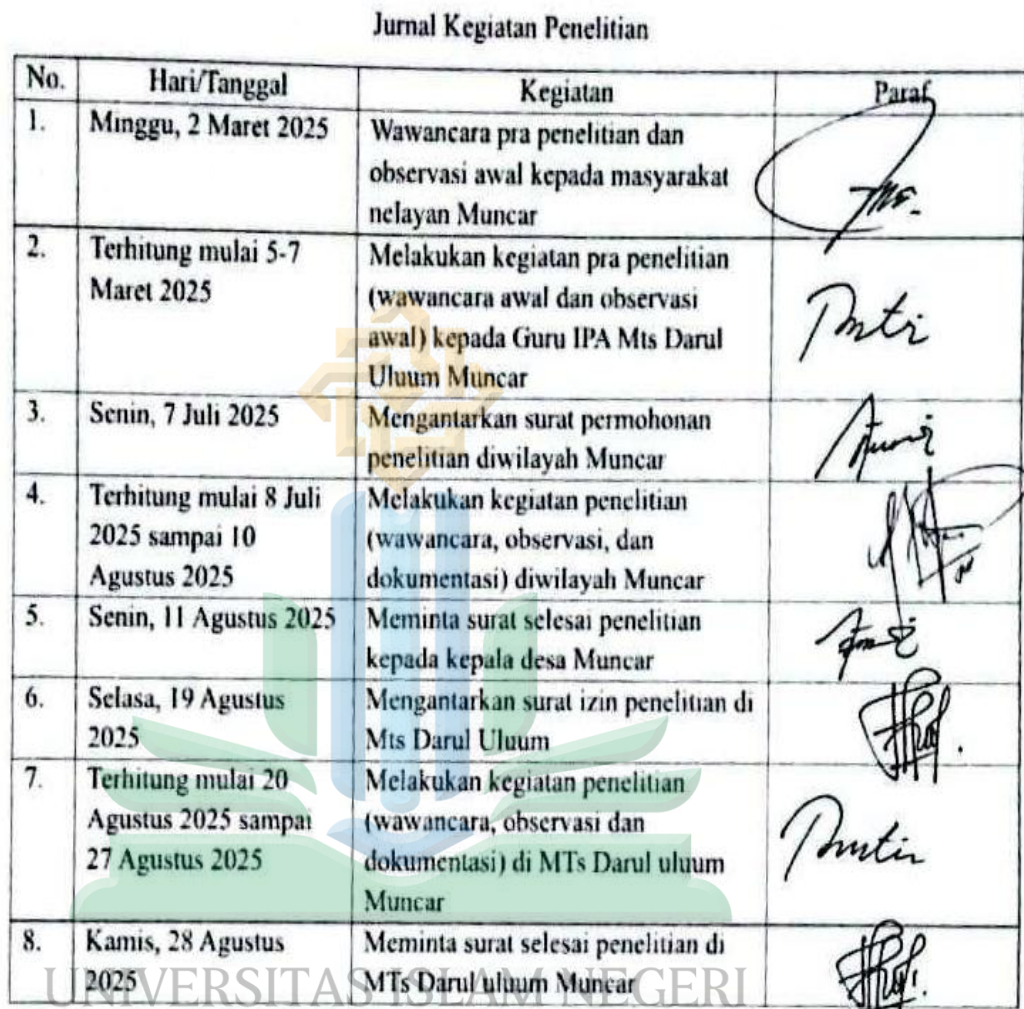 Jurnal Kegiatan Penelitian
No. Hari/Tanggal Kegiatan Paraf
1. Minggu, 2 Maret 2025 Wawancara pra penelitian dan
observasi awal kepada masyarakat
nelayan Muncar
2. Terhitung mulai 5-7 Melakukan kegiatan pra penelitian
Maret 2025 (wawancara awal dan observasi
awal) kepada Guru IPA Mts Darul
Uluum Muncar
3. Senin, 7 Juli 2025 Mengantarkan surat permohonan
penelitian diwilayah Muncar
4. Terhitung mulai 8 Juli Melakukan kegiatan penelitian
2025 sampai 10 (wawancara, observasi, dan
Agustus 2025 dokumentasi) diwilayah Muncar
5. Senin, 11 Agustus 2025 Meminta surat selesai penelitian
kepada kepala desa Muncar
6. Selasa, 19 Agustus Mengantarkan surat izin penelitian di
2025 Mts Darul Uluum
7. Terhitung mulai 20 Melakukan kegiatan penelitian
Agustus 2025 sampai (wawancara, observasi dan
27 Agustus 2025 dokumentasi) di MTs Darul uluum
Muncar
8. Kamis, 28 Agustus Meminta surat selesai penelitian di
2025 MTs Darul uluum Muncar
UNIVERSITAS ISLAM NEGERI